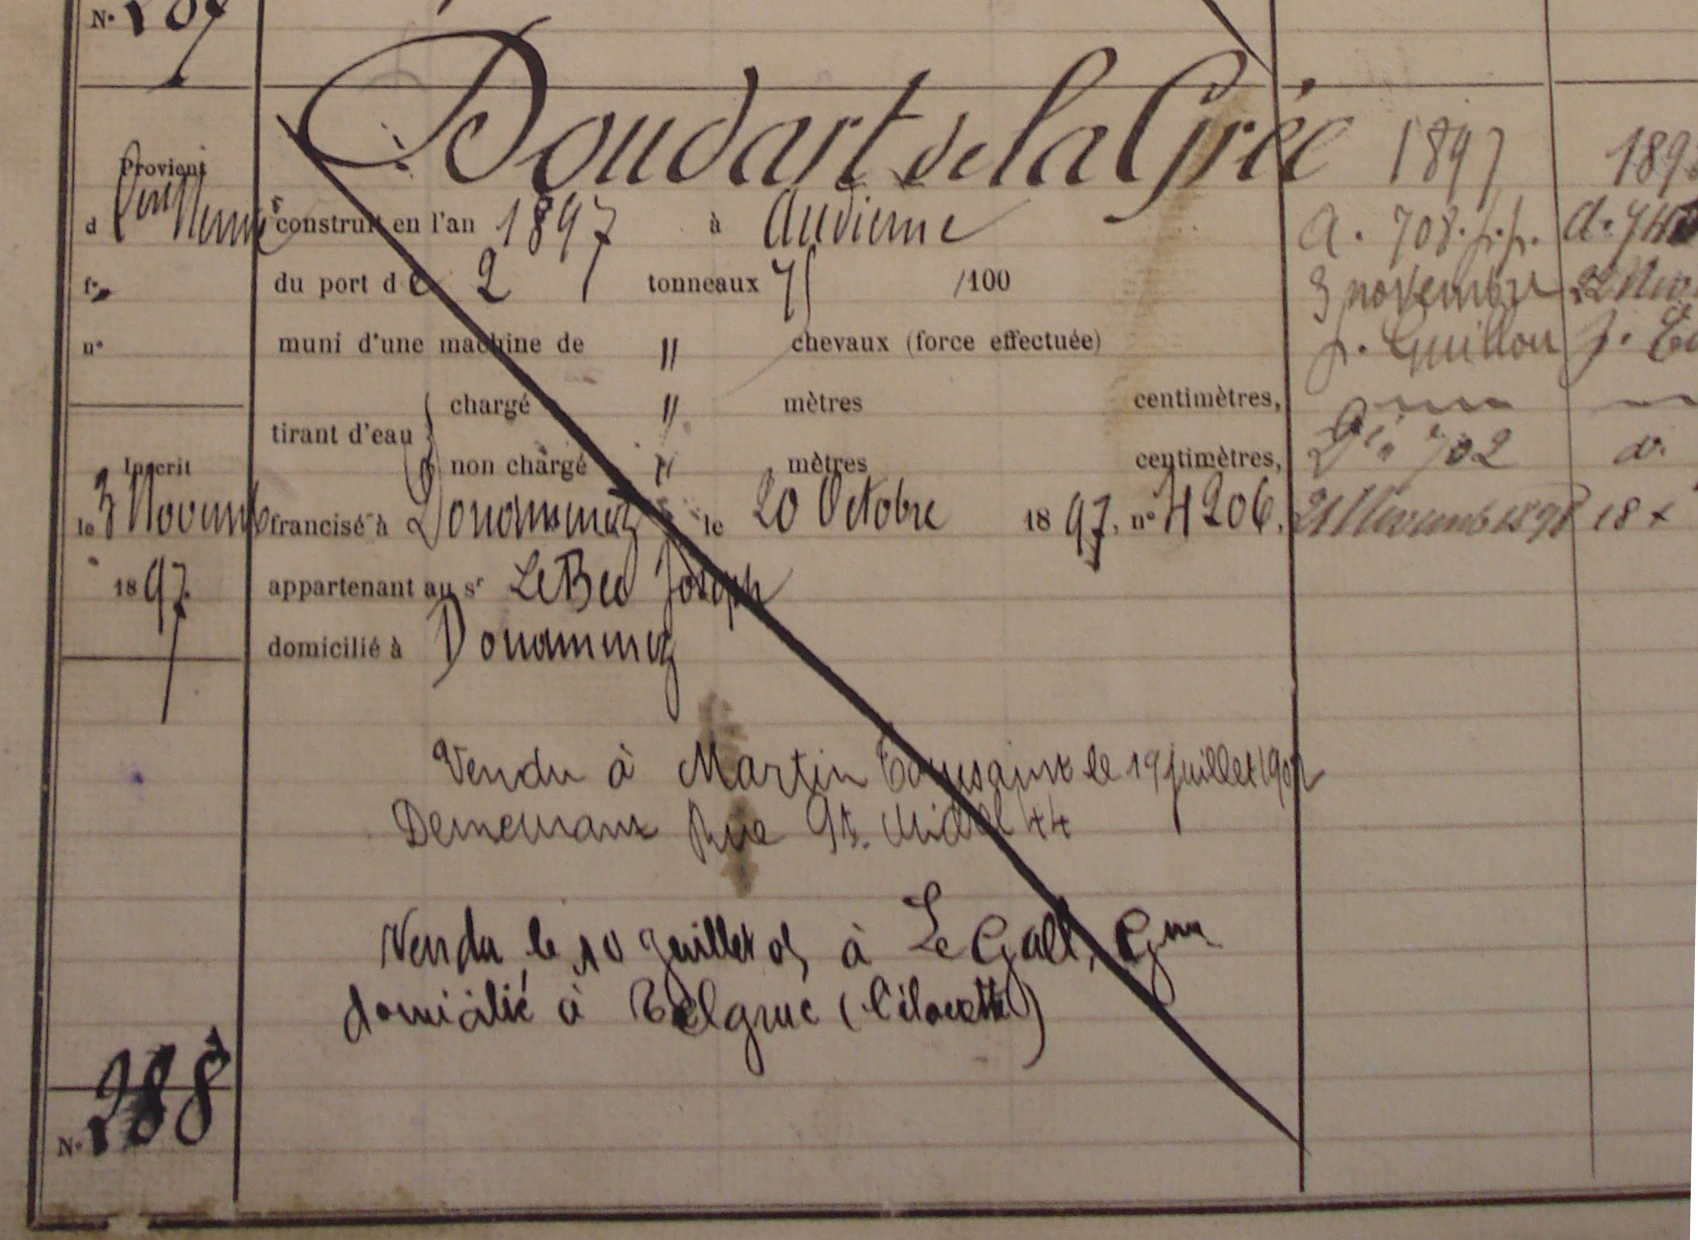 N°
Doudart de la Grée
Provient
d
construit en l'an 1897 à Audierne
f°
du port de 2 tonneaux 75 /100
n°
muni d'une machine de " chevaux (force effectuée)
tirant d'eau
chargé " mètres centimètres,
non chargé " mètres centimètres,
Inscrit
le 3 Novemb
1897
francisé à Douarnenez le 20 Octobre 1897. n° 4206.
appartenant au sr Le Bec Joseph
domicilié à Douarnenez
Vendu à Martin Toussaint le 19 juillet 1902
Demeurant Rue St. Michel 44
Vendu le 10 juillet 05 à Le Gall, Gme
domicilié à Telgruc
N° 288
1897
a. 708. f.f.
3 novembre
f. Guillou
702
21 Novemb 1898
189
22 Nov
18